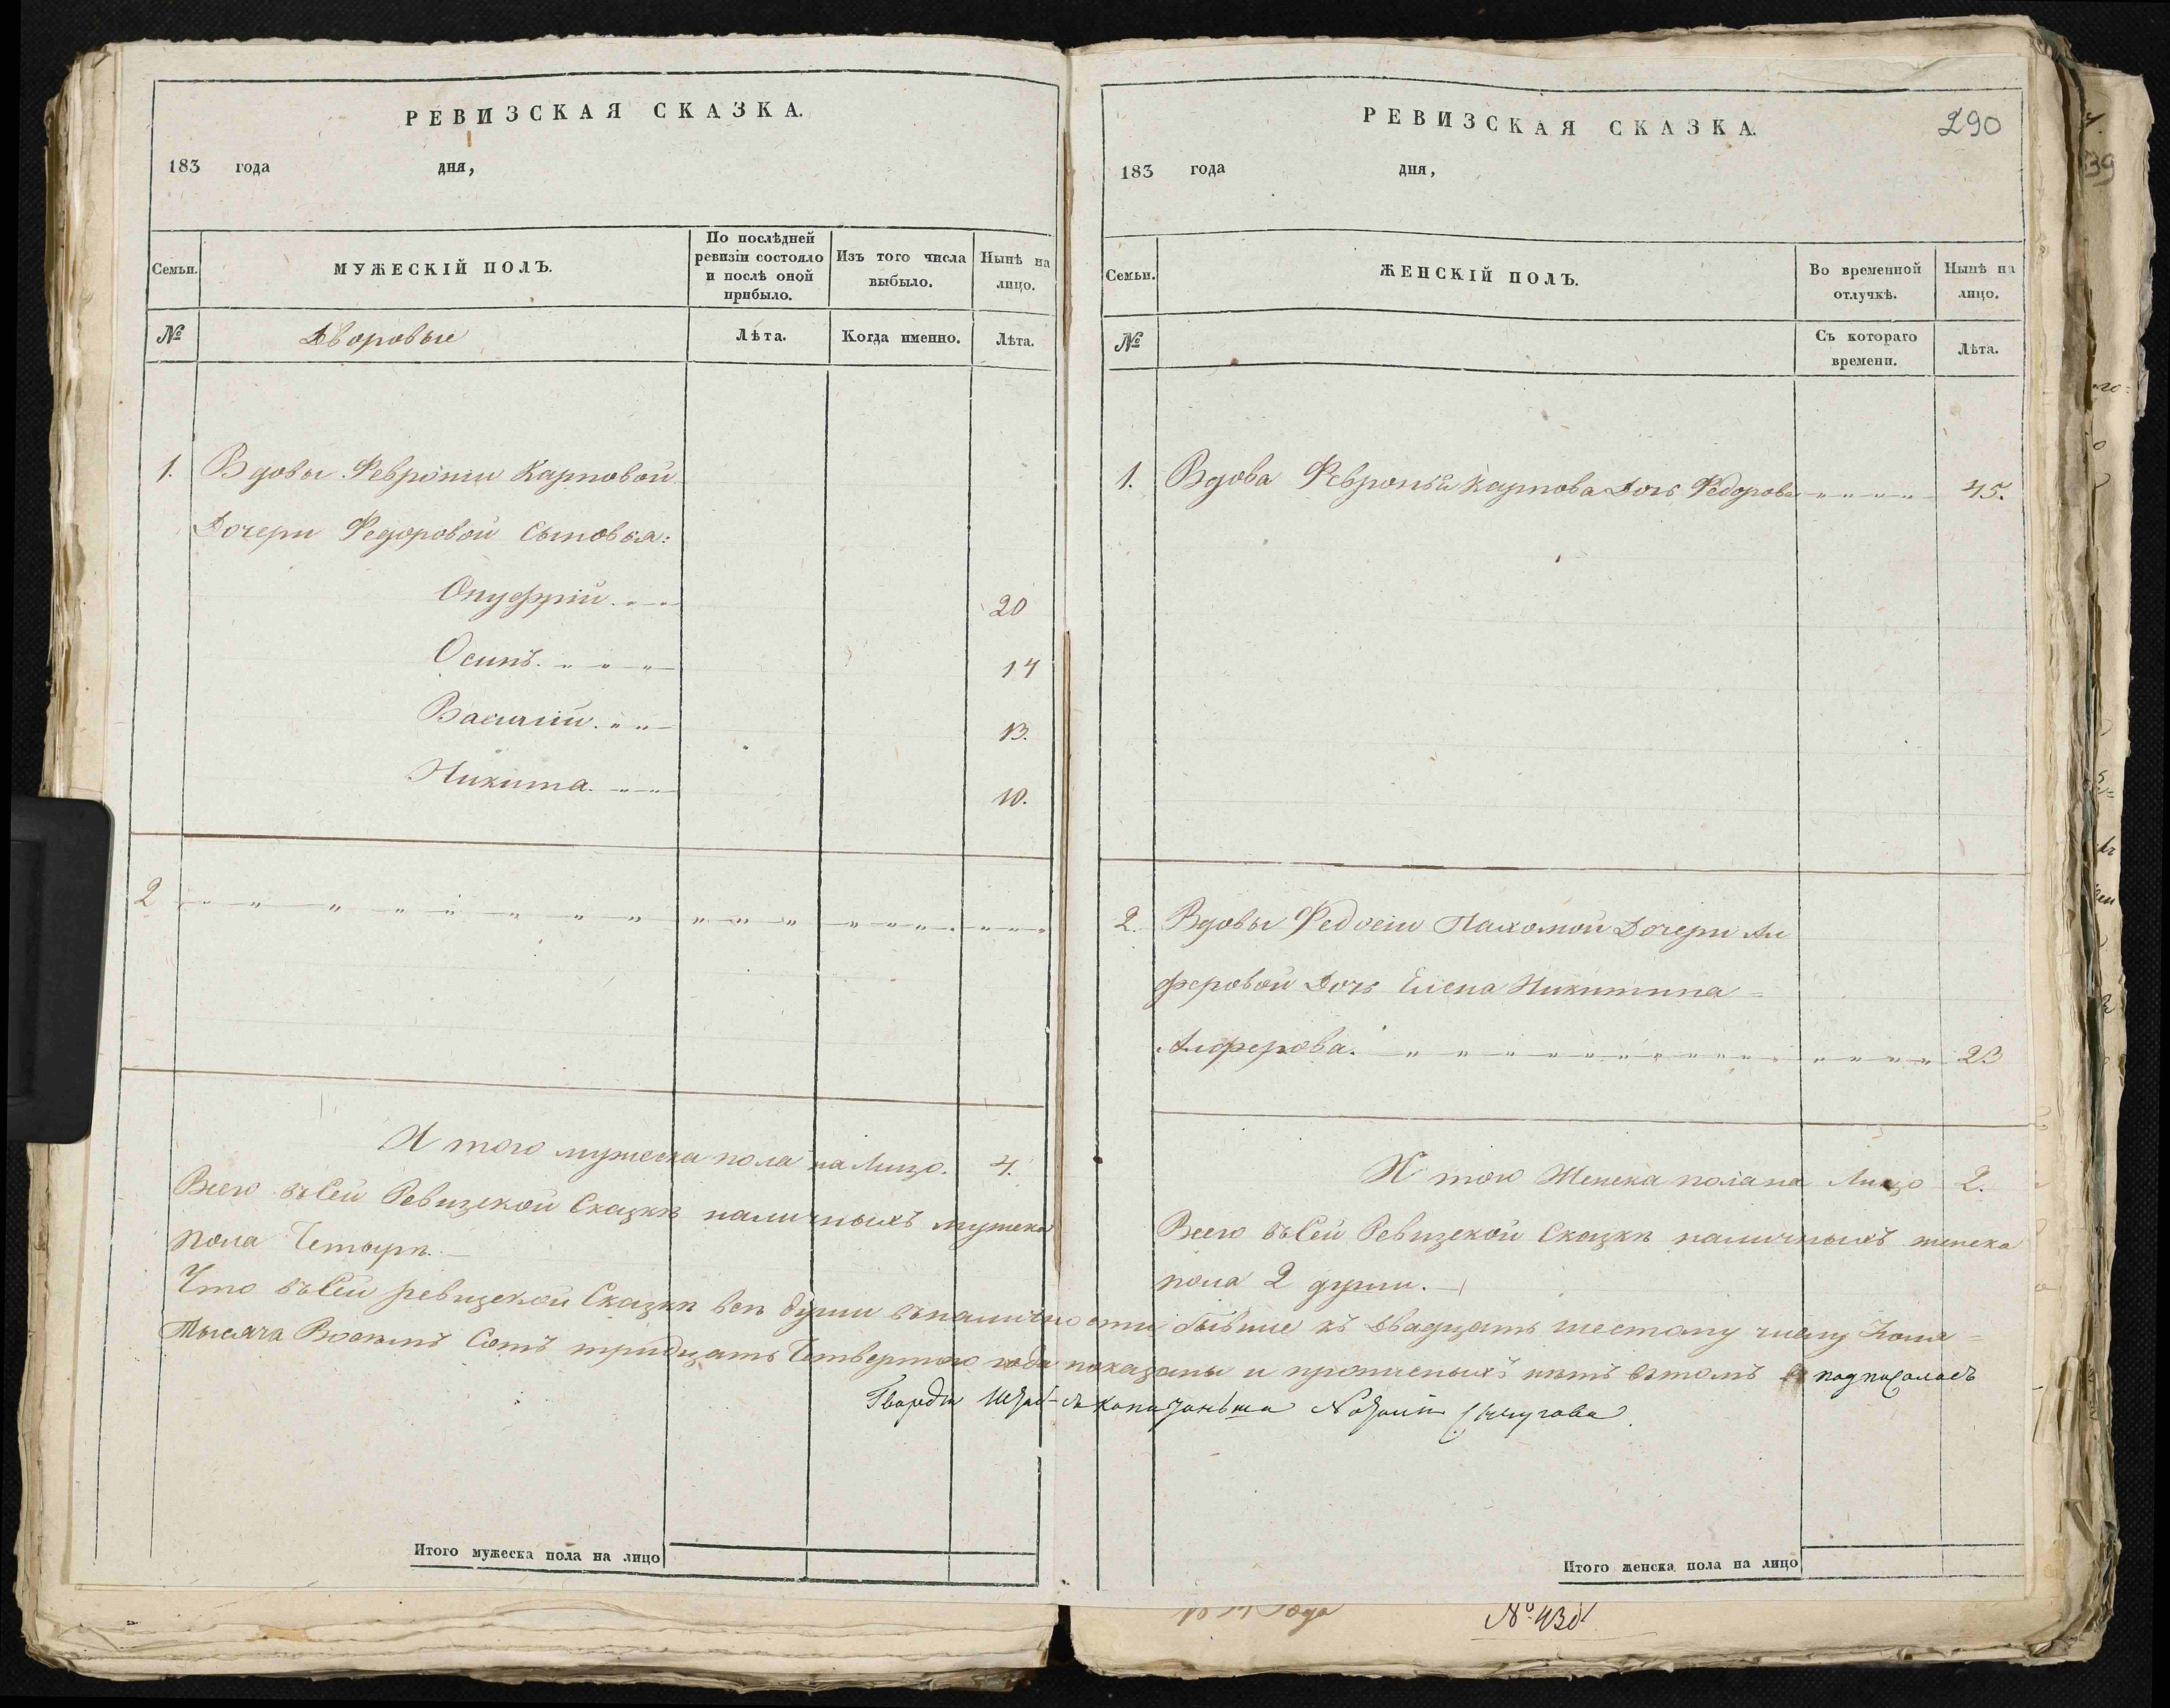 РЕВИЗСКАЯ СКАЗКА.
183 года дня,
Семьи. МУЖЕСКІЙ ПОЛЪ. По послѣдней ревизіи состояло и послѣ оной прибыло. Изъ того числа выбыло. Нынѣ на лицо.
№ Дворовые Лѣта. Когда именно. Лѣта.
1. Вдовы Февроніи Карповой
Дочери Федоровой Сыновья:
Онуфрій 20
Осипъ. 14
Василій. 13.
Никита. 10.
2
И того мужеска пола на Лицо. 4.
Всего въ Сей Ревизской Сказкѣ наличныхъ мужеска
пола Четыре.
РЕВИЗСКАЯ СКАЗКА.
290
183 года дня,
Семьи. ЖЕНСКІЙ ПОЛЪ. Во временной отлучкѣ. Нынѣ на лицо.
№ Съ котораго времени. Лѣта.
1. Вдова Февронья Карпова Дочь Федорова 45.
2. Вдовы Федосіи Пахомой Дочери Ал
феровой Дочь Елена Никитина
Алферова. 23
И того Женска пола на Лицо 2.
Всего въ Сей Ревизской Сказкѣ наличныхъ женска
пола 2 души.
Что въ Сей ревизской Сказкѣ всѣ души въ наличности бывшие къ двадцать шестому числу Іюня
тысяча Восемь Сотъ тридцать Четвертого года показаны и прописныхъ нѣтъ вътомъ подписалась
Гвардіи
Итого мужеска пола на лицо
Итого женска пола на лицо
года
№